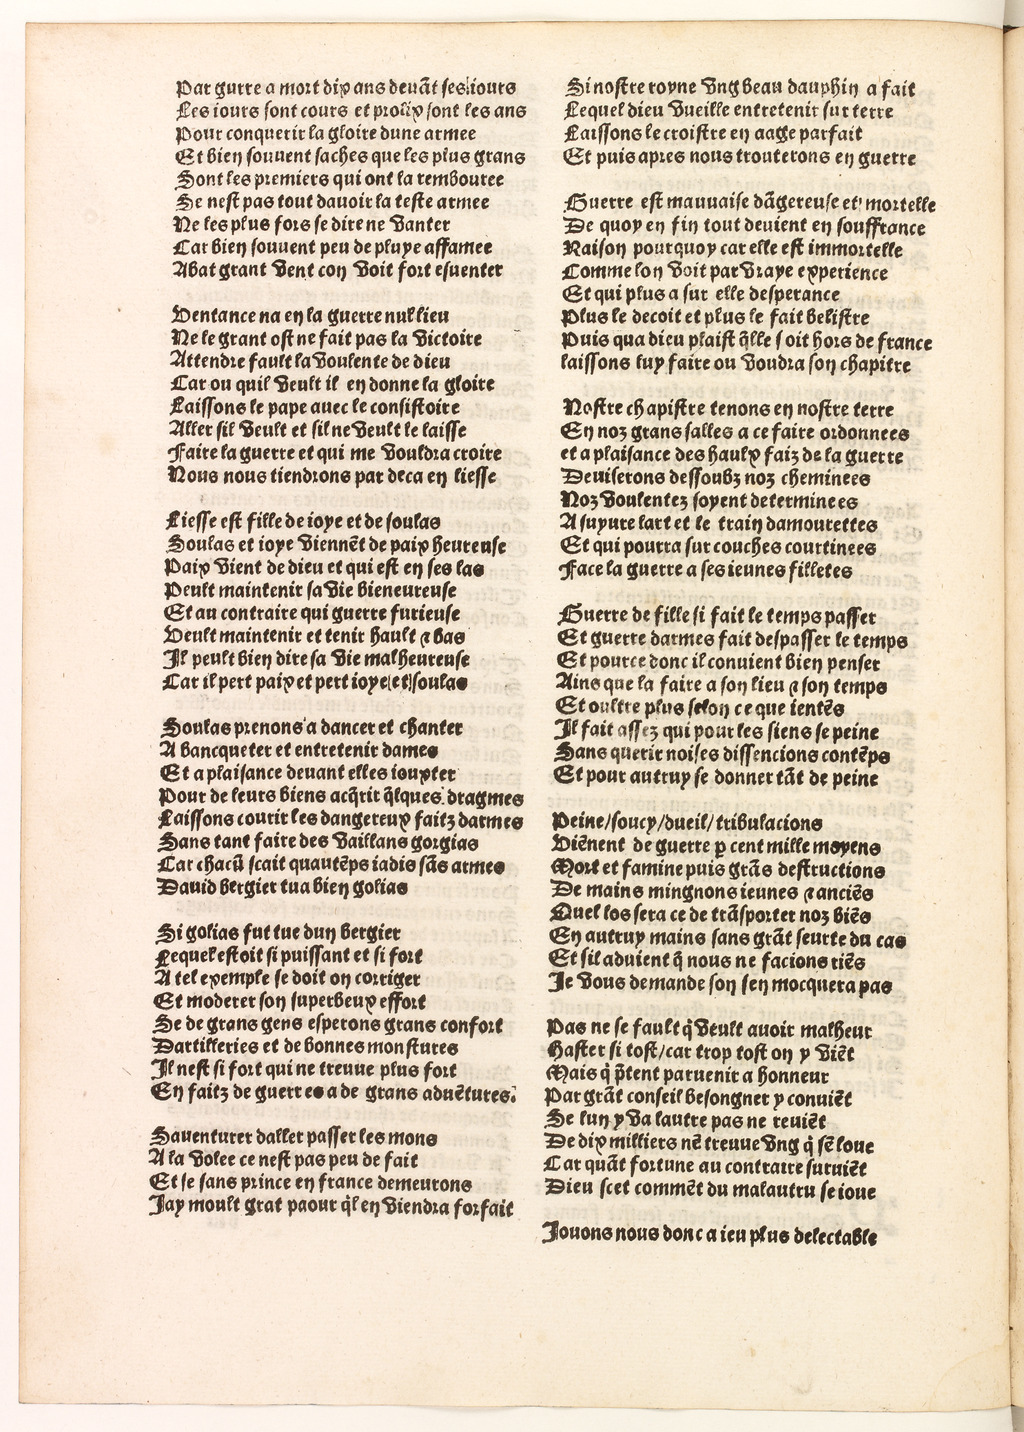 Par gurre a mort dix ans deuãt ses iours
Les iours sont cours et prolix sont les ans
Pour conquerir la gloire dune armee
Et bien souuent saches que les plus grans
Sont les premiers qui ont la rembouree
Se nest pas tout dauoir la teste armee
Ne les plus fors se dire ne vanter
Car bien souuent peu de pluye affamee
Abat grant vent con voit fort esuenter

Ventance na en la guerre nul lieu
Ne le grant ost ne fait pas la victoire
Attendre fault la voulente de dieu
Car ou quil veult il en donne la gloire
Laissons le pape auec le consistoire
Aller sil veult et sil ne veult le laisse
Faire la guerre et qui me vouldra croire
Nous nous tiendrons par deca en liesse

Liesse est fille de ioye et de soulas
Soulas et ioye viennẽt de paix heureuse
Paix vient de dieu et qui est en ses las
Peult maintenir sa vie bieneureuse
Et au contraire qui guerre furieuse
Veult maintenir et tenir hault ⁊ bas
Il peult bien dire sa vie malheureuse
Car il pert paix et pert ioye et soulas

Soulas prenons a dancer et chanter
A bancqueter et entretenir dames
Et a plaisance deuant elles iouxter
Pour de leurs biens acq̃rir q̃lques dragmes
Laissons courir les dangereux faitz darmes
Sans tant faire des vaillans gorgias
Car chacũ scait quautẽps iadis sãs armes
Dauid bergier tua bien golias

Si golias fut tue dun bergier
Lequel estoit si puissant et si fort
A tel exemple se doit on corriger
Et moderer son superbeux effort
Se de grans gens esperons grans confort
Dartilleries et de bonnes monstures
Il nest si fort qui ne treuue plus fort
En faitz de guerres a de grans aduẽtures.

Sauenturer daller passer les mons
A la volee ce nest pas peu de fait
Et se sans prince en france demeurons
Jay moult grat paour q̃l en viendra forfait

Si nostre royne vng beau dauphin a fait
Lequel dieu vueille entretenir sur terre
Laissons le croistre en aage parfait
Et puis apres nous trouterons en guerre

Guerre est mauuaise dãgereuse et mortelle
De quoy en fin tout deuient en souffrance
Raison pourquoy car elle est immortelle
Comme lon voit par vraye experience
Et qui plus a sur elle desperance
Plus le decoit et plus le fait belistre
Puis qua dieu plaist q̃lle soit hors de france
laissons luy faire ou voudra son chapitre

Nostre chapistre tenons en nostre terre
En noz grans salles a ce faire ordonnees
et a plaisance des haulx faiz de la guerre
Deuiserons dessoubz noz cheminees
Noz voulentez soyent determinees
A suyure lart et le train damourettes
Et qui pourra sur couches courtinees
Face la guerre a ses ieunes filletes

Guerre de fille si fait le temps passer
Et guerre darmes fait despasser le temps
Et pource donc il conuient bien penser
Ains que la faire a son lieu ⁊ son temps
Et oultre plus selon ce que ientẽs
Il fait assez qui pour les siens se peine
Sans querir noises dissencions contẽps
Et pour autruy se donner tãt de peine

Peine/soucy/dueil/tribulacions
Viẽnent de guerre ꝑ cent mille moyens
Mort et famine puis grãs destructions
De mains mingnons ieunes ⁊ anciẽs
Quel los sera ce de trãsporter noz biẽs
En autruy mains sans grãt seurte du cas
Et sil aduient q̃ nous ne facions riẽs
Je vous demande son sen mocquera pas

Pas ne se fault q̃ veult auoir malheur
Haster si tost/car trop tost on y viẽt
Mais q̃ p̃tent paruenir a honneur
Par grãt conseil besongner y conuiẽt
Se lun y va lautre pas ne reuiẽt
De dix milliers nẽ treuue vng q̃ sẽ loue
Car quãt fortune au contraire suruiẽt
Dieu scet commẽt du malautru se ioue

Jouons nous donc a ieu plus delectable